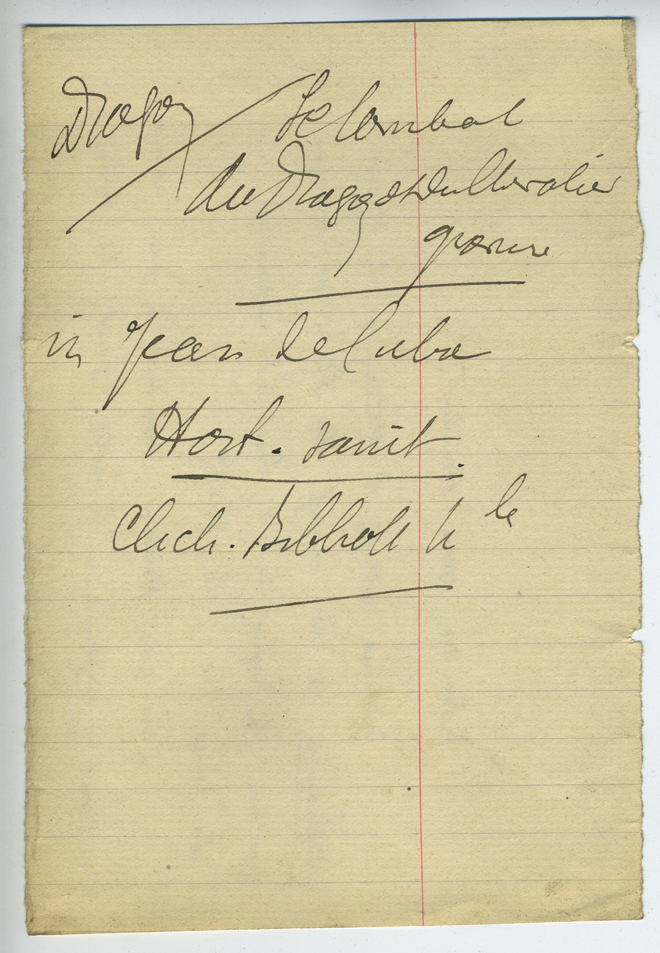 Dragon / Le Combat
du Dragon et du Chevalier
gravure
in Jean de Cuba
Hort. sanit.
Clich. Biblioth Nle